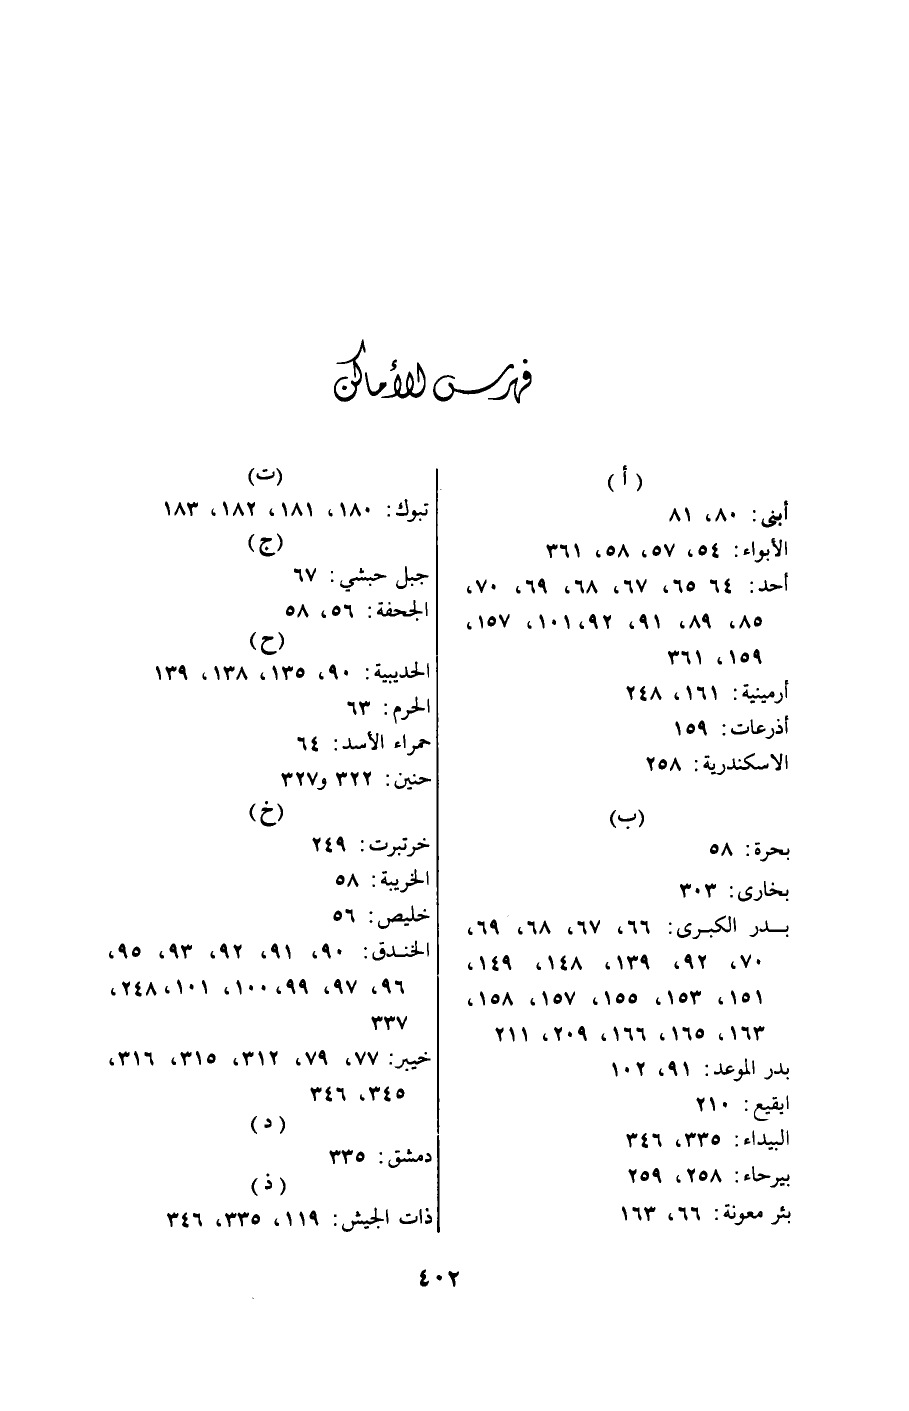 فهرس الأماكن
(أ)
أبنى: ٨٠، ٨١
الأبواء: ٥٤، ٥٧، ٥٨، ٣٦١
أحد: ٦٤ ٦٥، ٦٧، ٦٨، ٦٩، ٧٠،
٨٥، ٨٩، ٩١، ٩٢،١٠١، ١٥٧،
١٥٩، ٣٦١
أرمينية: ١٦١، ٢٤٨
أذرعات: ١٥٩
الاسكندرية: ٢٥٨
(ب)
بحرة: ٥٨
بخارى: ٣٠٣
بـدر الكبرى: ٦٦، ٦٧، ٦٨، ٦٩،
٧٠، ٩٢، ١٣٩، ١٤٨، ١٤٩،
١٥١، ١٥٣، ١٥٥، ١٥٧، ١٥٨،
١٦٣، ١٦٥، ١٦٦، ٢٠٩، ٢١١
بدر الموعد: ٩١، ١٠٢
ابقيع: ٢١٠
البيداء: ٣٣٥، ٣٤٦
بيرحاء: ٢٥٨، ٢٥٩
بئر معونة: ٦٦، ١٦٣
(ت)
تبوك: ١٨٠، ١٨١، ١٨٢، ١٨٣
(ج)
جبل حبشي: ٦٧
الجحفة: ٥٦، ٥٨
(ح)
الحديبية: ٩٠، ١٣٥، ١٣٨، ١٣٩
الحرم: ٦٣
حمراء الأسد: ٦٤
حنين: ٣٢٢ و٣٢٧
(خ)
خرتبرت: ٢٤٩
الخريبة: ٥٨
خليص: ٥٦
الخندق: ٩٠، ٩١، ٩٢، ٩٣، ٩٥،
٩٦، ٩٧، ٩٩،١٠٠، ١٠١،٢٤٨،
٣٣٧
خيبر: ٧٧، ٧٩، ٣١٢، ٣١٥، ٣١٦،
٣٤٥، ٣٤٦
(د)
دمشق: ٣٣٥
(ذ)
ذات الجيش: ١١٩، ٣٣٥، ٣٤٦
٤٠٢